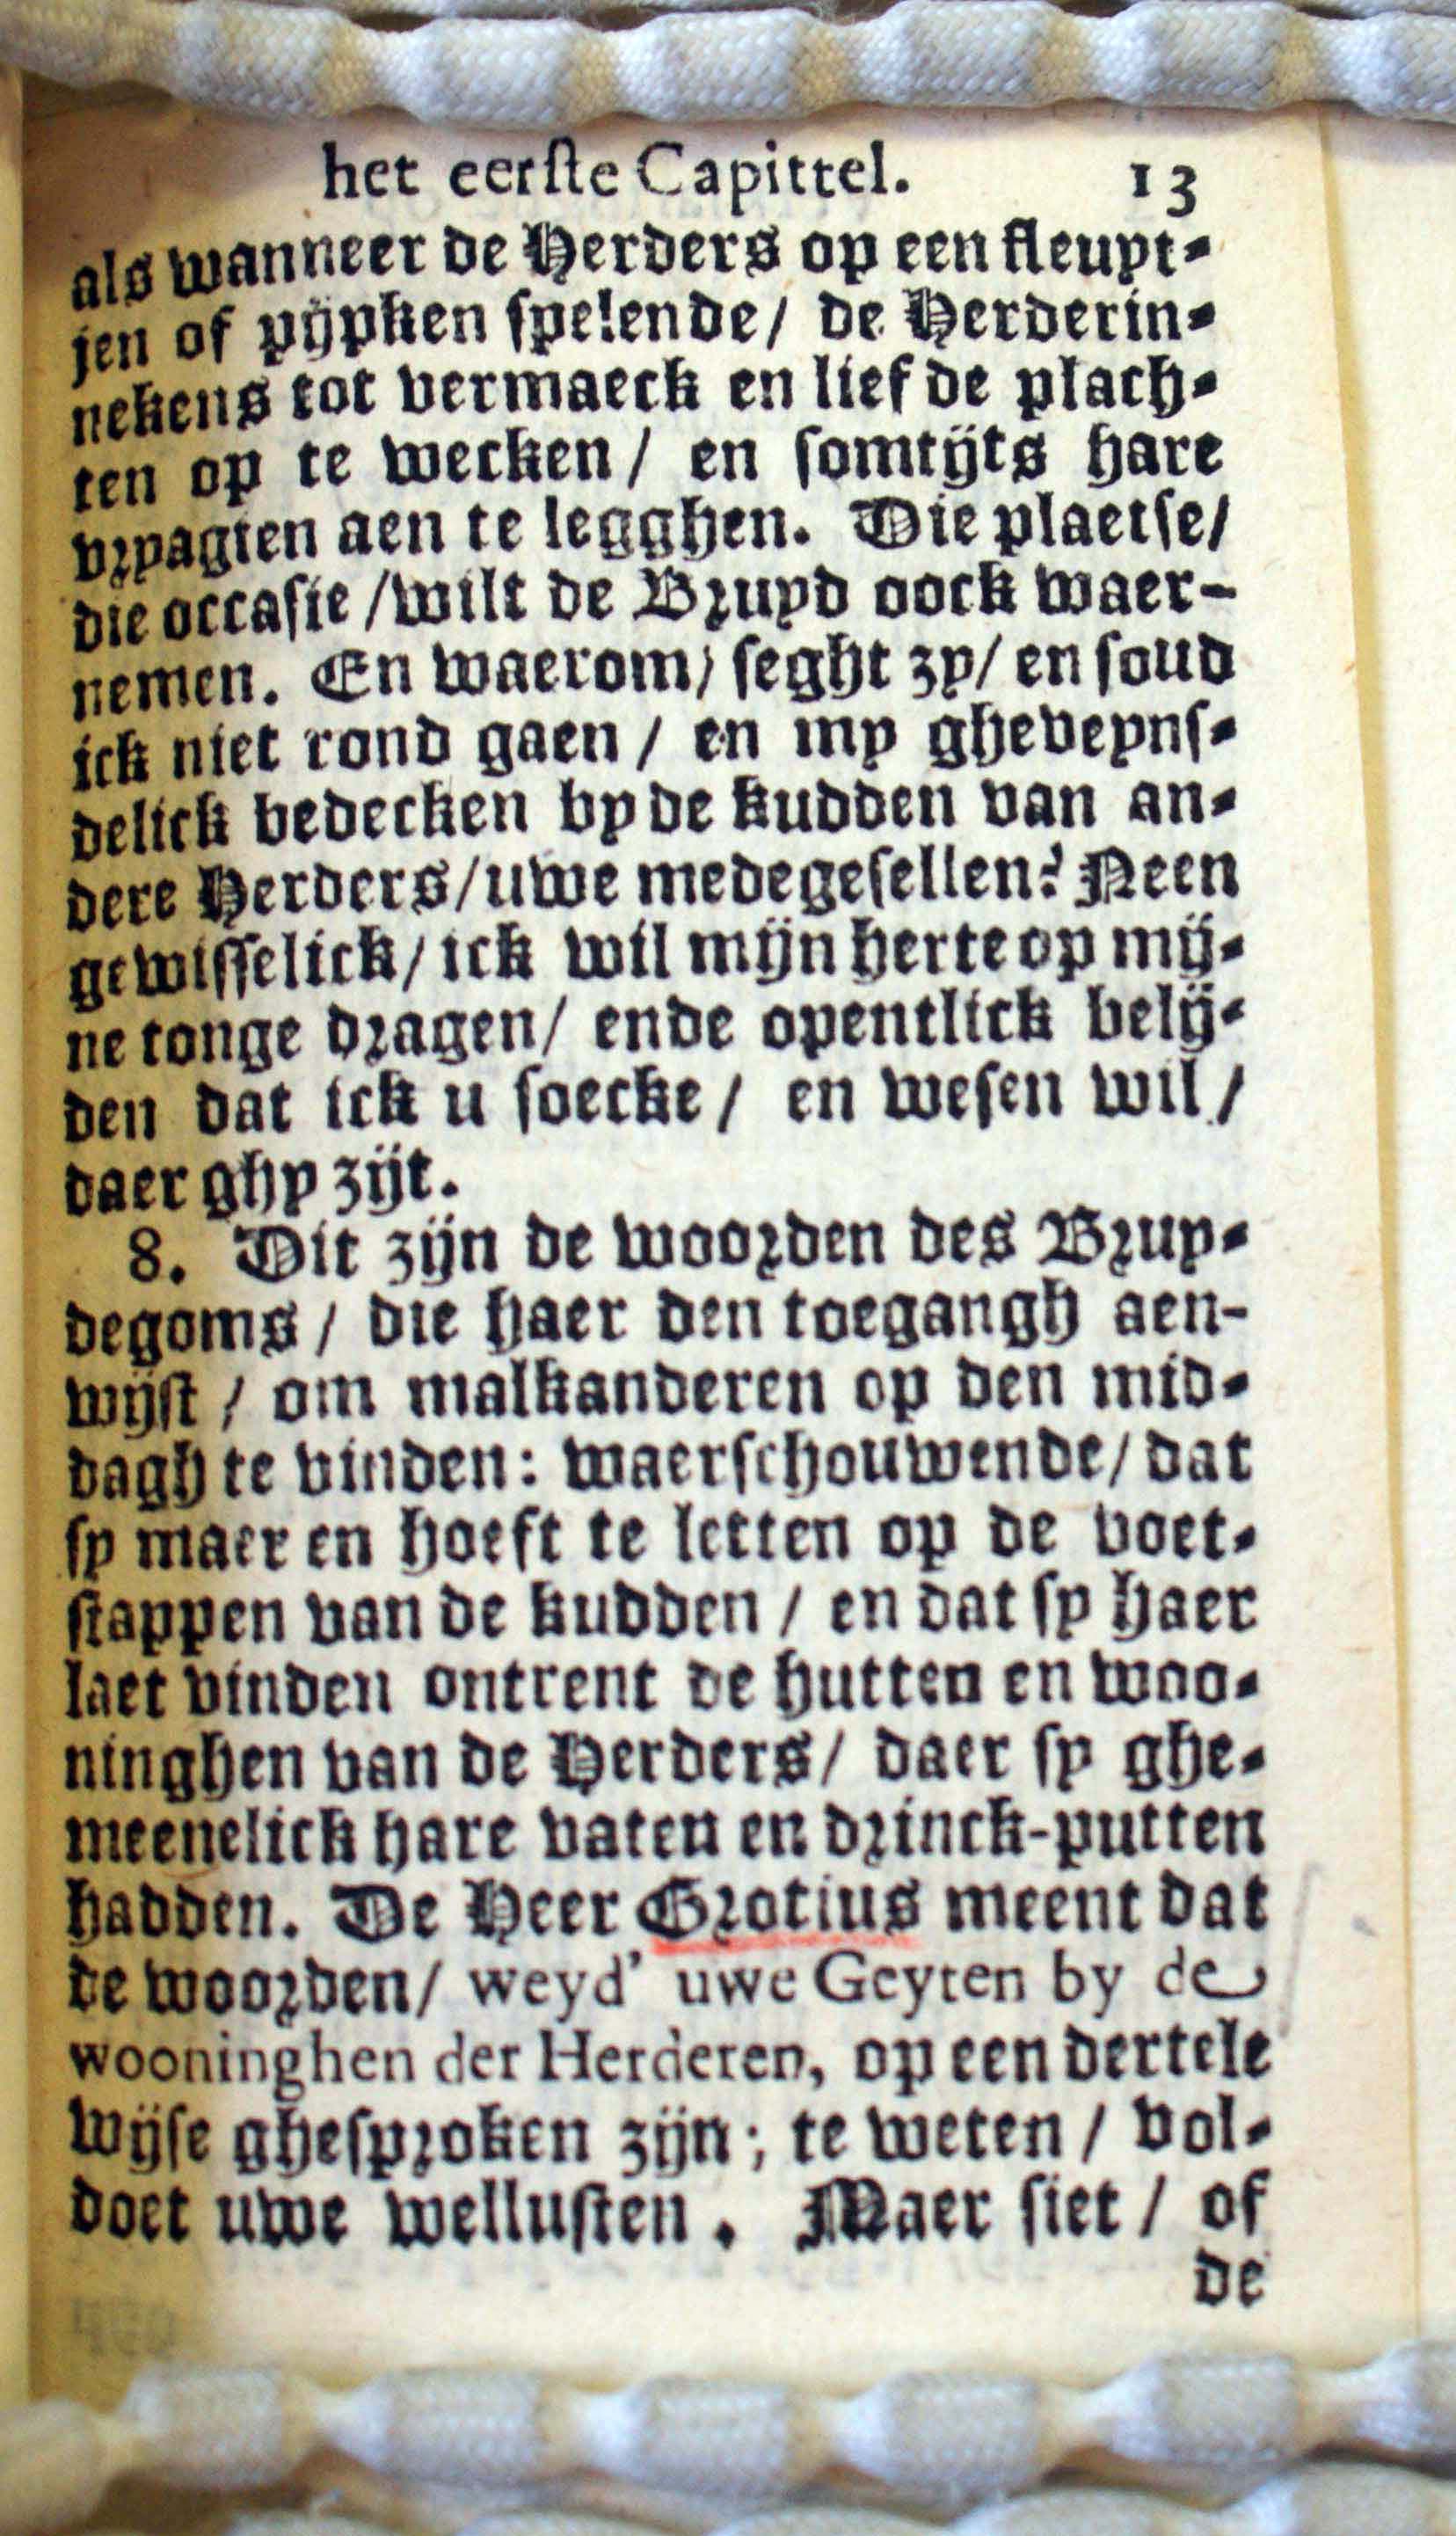 het eerste Capittel. 13
als wanneer de Herders op een fleuyt-
jen of pijpken spelende/ de Herderin-
nekens tot vermaeck en liefde plach-
ten op te wecken/ en somtijts hare
vrpagien aen te legghen. Die plaetse/
die occasie/wilt de Bruyd oock waer-
nemen. En waerom/ seght zy/ en soud
ick niet rond gaen/ en my gheveyns-
delick bedecken by de kudden van an-
dere Herders/uwe medegesellen? Neen
gewisselick/ ick wil mijn herte op mij-
ne tonge dragen/ ende opentlick belij-
den dat ick u soecke/ en wesen wil/
daer ghy zijt.
8. Dit zijn de woorden des Bruy-
degoms/ die haer den toegangh aen-
wijst/ om malkanderen op den mid-
dagh te vinden: waerschouwende/ dat
sy maer en hoeft te letten op de voet-
stappen van de kudden/ en dat sy haer
laet vinden ontrent de hutten en woo-
ninghen van de Herders/ daer sy ghe-
meenelick hare vaten en drinck-putten
hadden. De Heer Grotius meent dat
de woorden/ weyd' uwe Geyten by de
wooninghen der Herderen, op een dertele
wijse ghesproken zijn; te weten/ vol-
doet uwe wellusten. Maer siet/ of
de